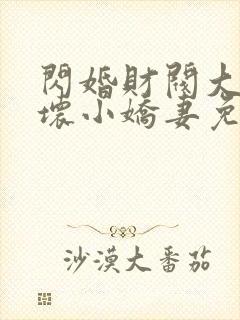 閃婚財閥大
壞小嬌妻免
沙漠大番茄